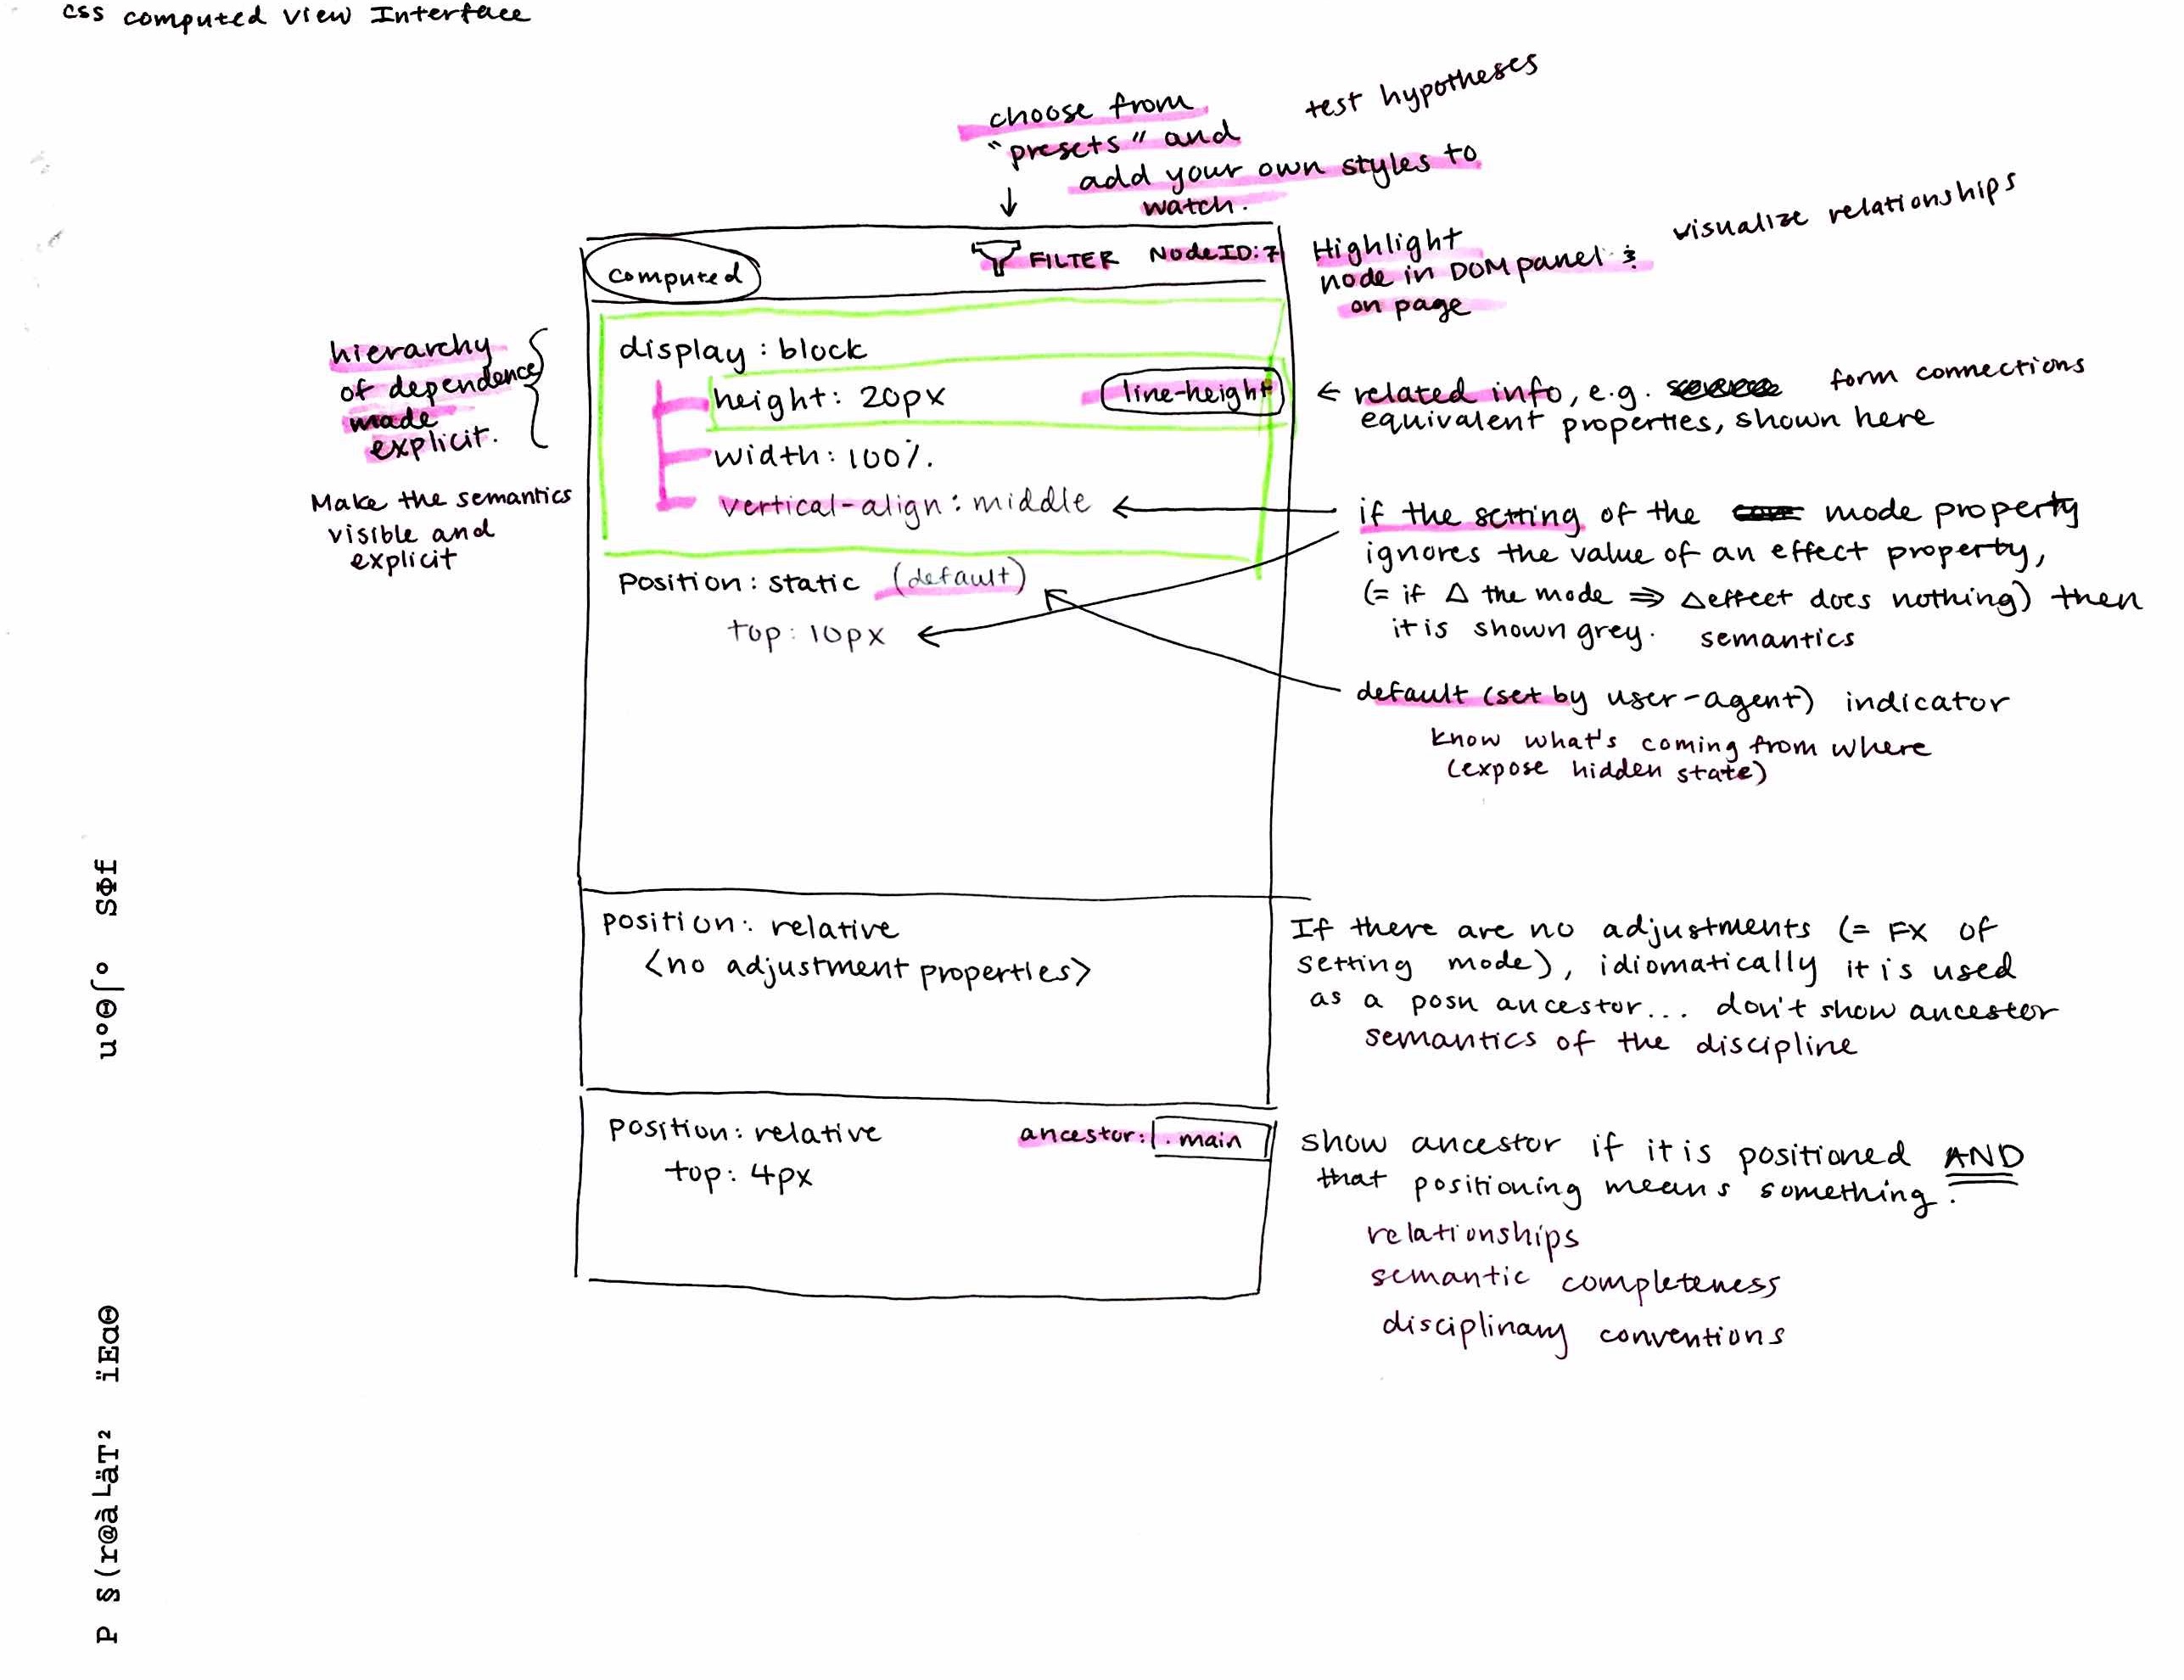 css computed view Interface
choose from
"presets" and
add your own styles to
watch.
test hypotheses
computed
FILTER
NodeID:7
Highlight
node in DOM panel &
on page
visualize relationships
hierarchy
of dependence
made
explicit.
Make the semantics
visible and
explicit
display : block
height: 20px
line-height
width: 100%.
vertical-align: middle
position: static (default)
top: 10px
← related info, e.g.
equivalent properties, shown here
form connections
if the setting of the mode property
ignores the value of an effect property,
(= if Δ the mode ⇒ Δeffect does nothing) then
it is shown grey. semantics
default (set by user-agent) indicator
know what's coming from where
(expose hidden state)
position: relative
<no adjustment properties>
If there are no adjustments (= FX of
setting mode), idiomatically it is used
as a posn ancestor... don't show ancestor
semantics of the discipline
position: relative
ancestor: .main
top: 4px
show ancestor if it is positioned AND
that positioning means something.
relationships
semantic completeness
disciplinary conventions